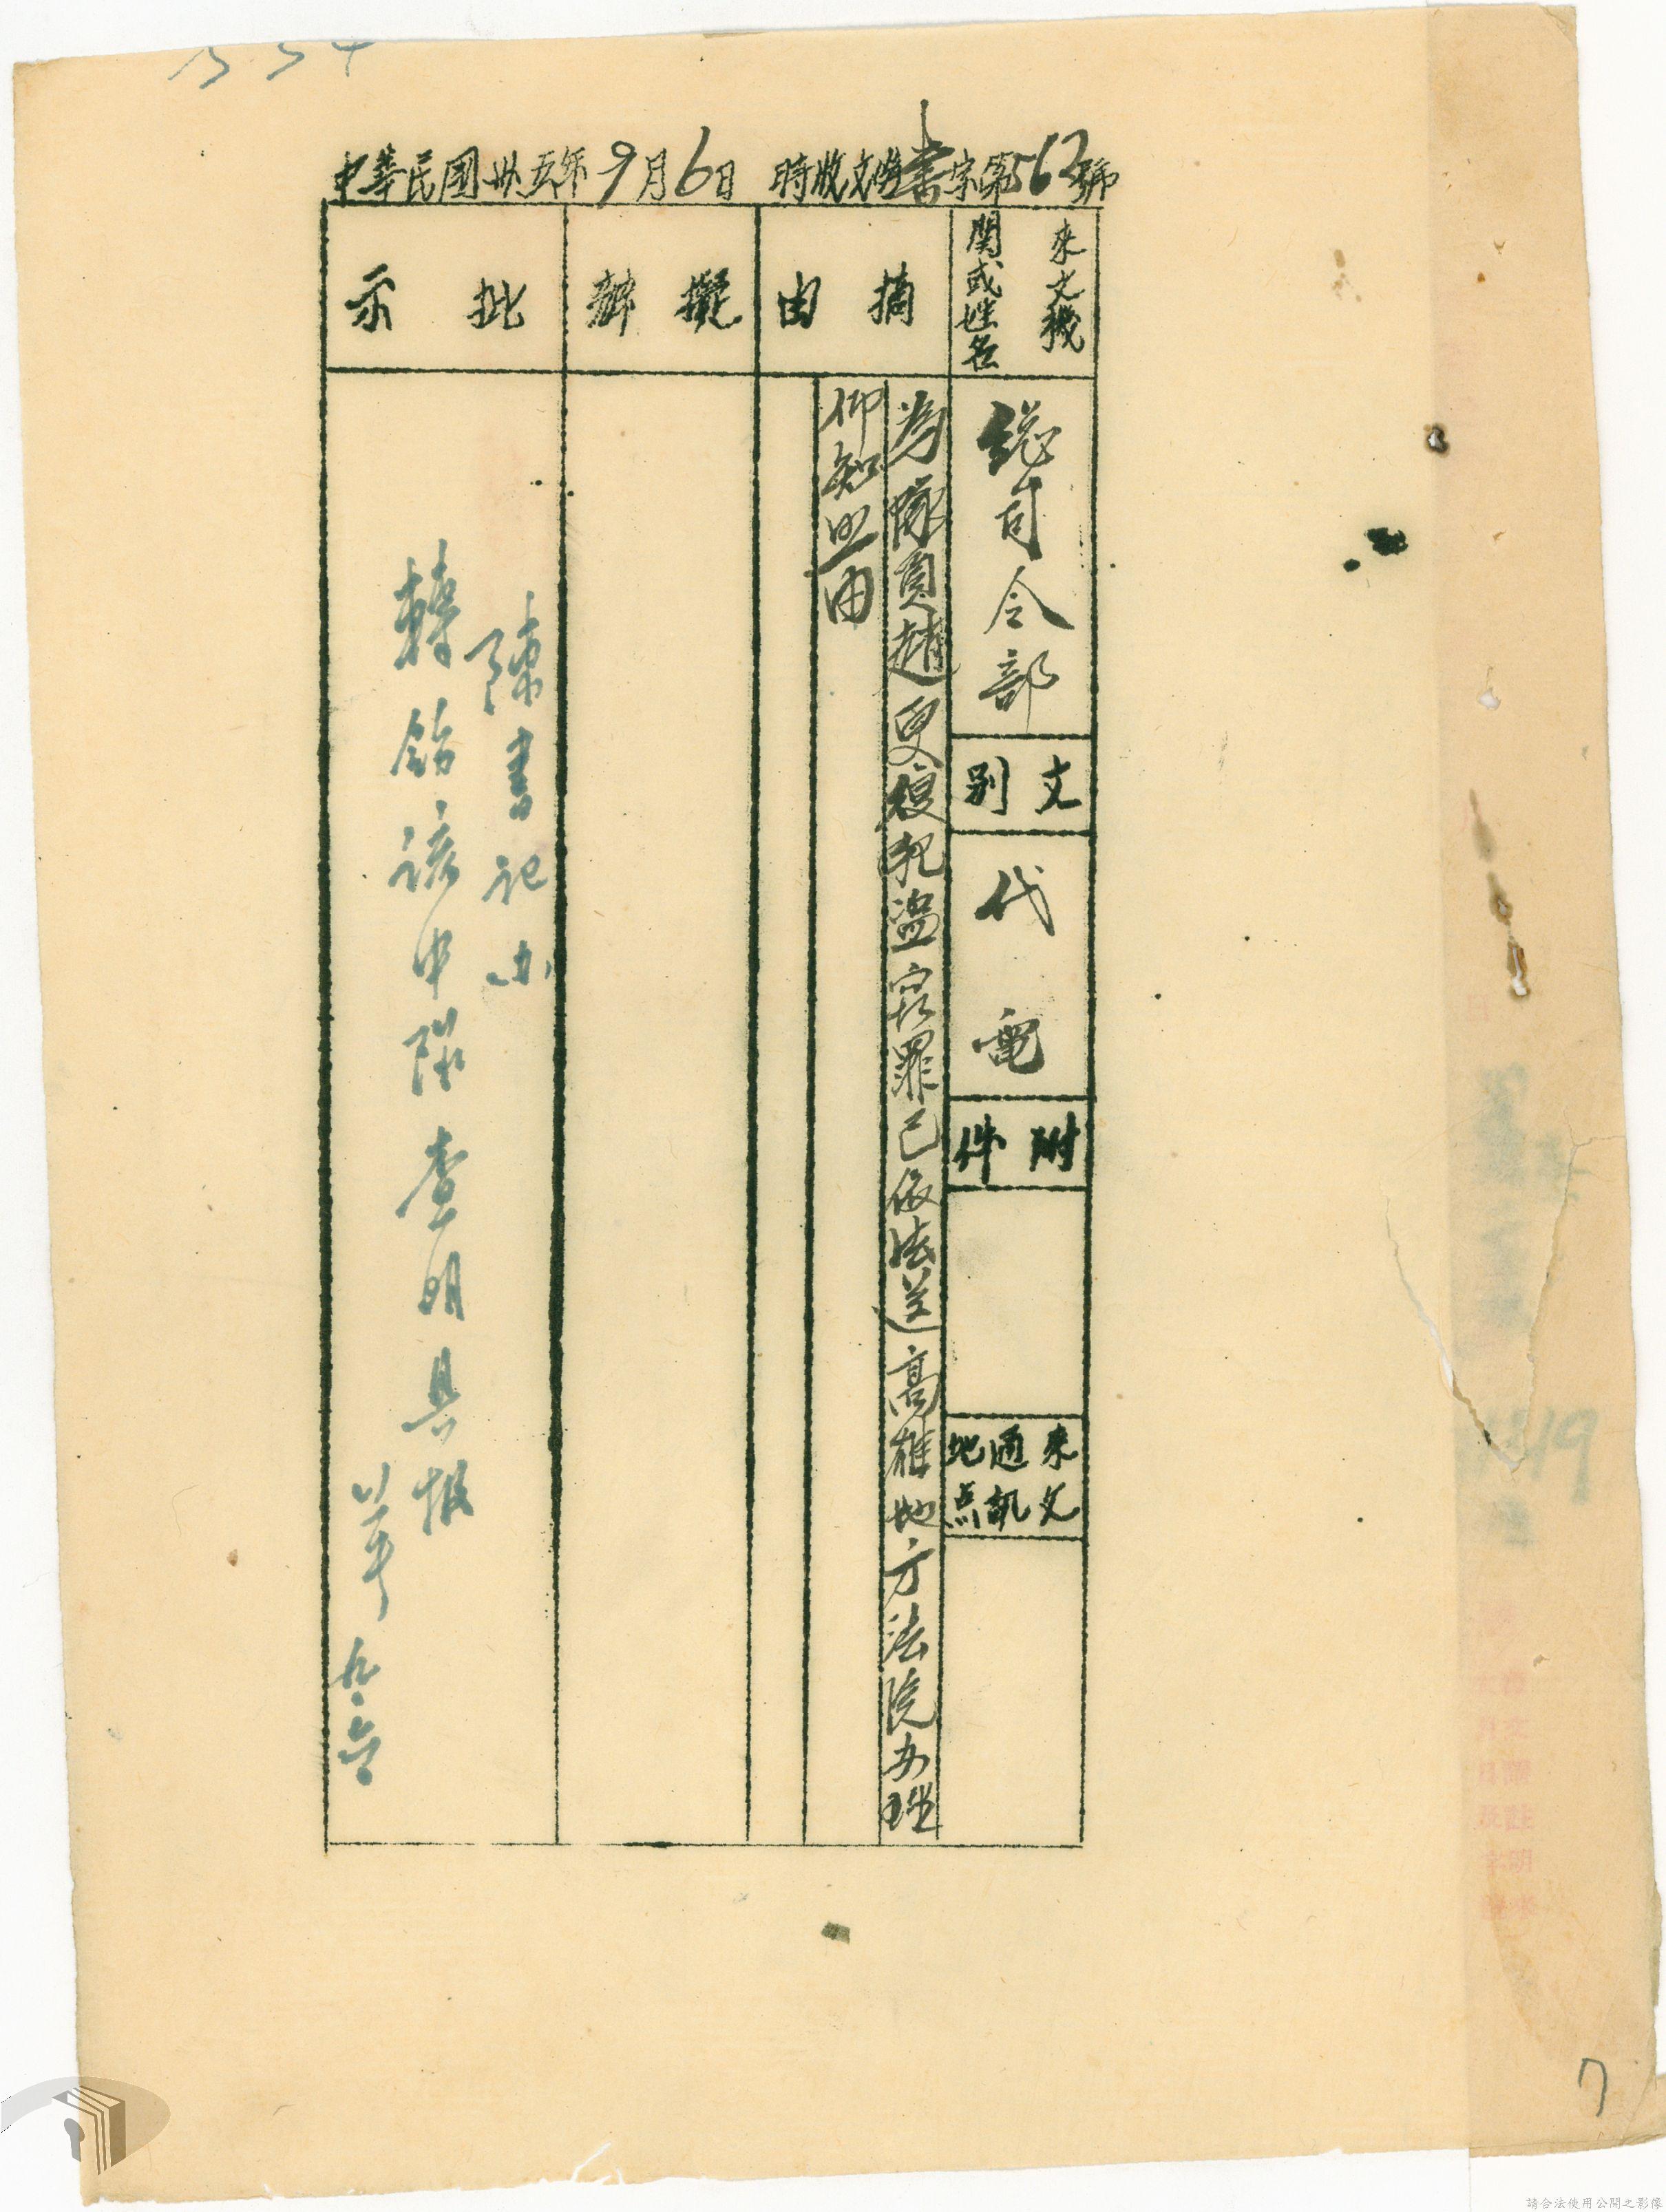 中華民国卅五年9月6日 時收文 書字第562號
來文機
関或姓名
総司令部
文別
代電
附件
來文
通訊
地点
摘由
為隊員趙更複犯盜竊罪已依法送高雄地方法院办理
仰知照由
擬辦
批示
陳書記办
轉飭該中隊查明具報
九.六
7
請合法使用公開之影像